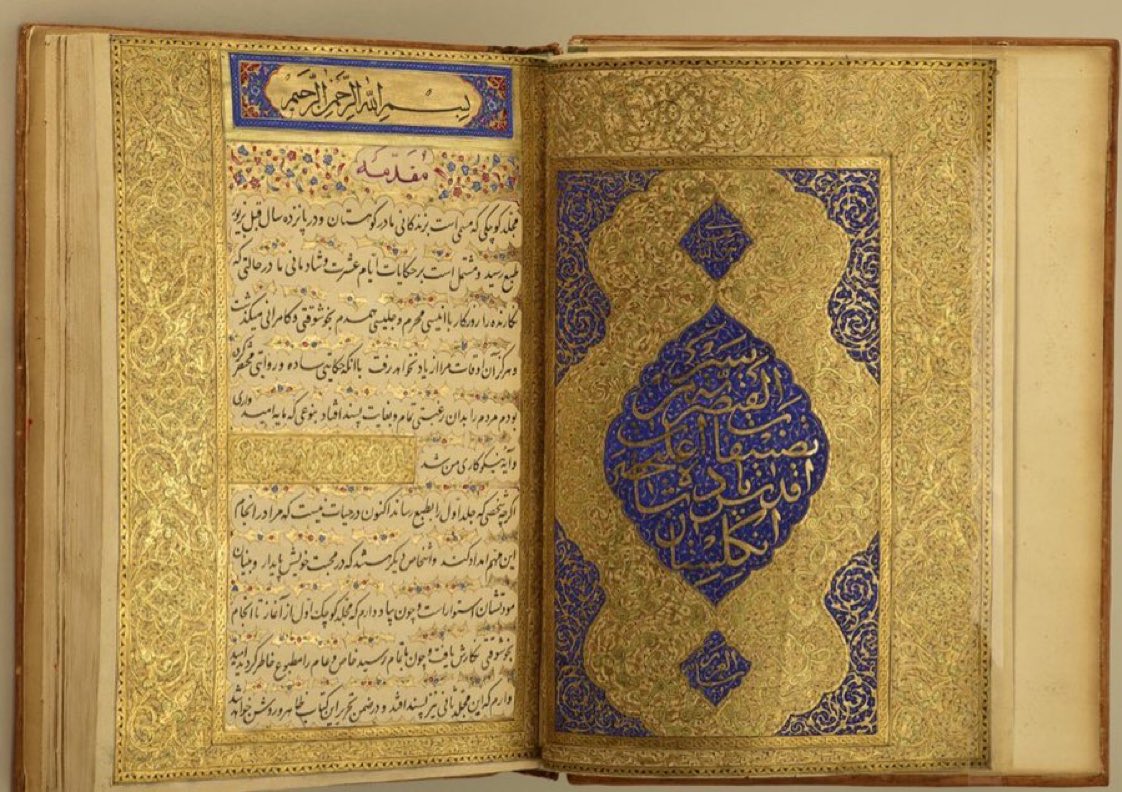 تصنیفات
اعلیحضرت
اقدس پادشاه
انگلستان
بسم الله الرحمن الرحیم
مقدمه
مجلد کوچکی که مسمی است بزندگانی ما در کوهستان و در پانزده سال قبل بزیور
طبع رسید و مشتمل است بر حکایات ایام عشرت و شادمانی ما در حالتی که
نگارنده را روزگار با انیسی محرم و جلیسی همدم بخوشوقتی و کامرانی میگذشت
و هرگز آن اوقات مرا از یاد نخواهد رفت با آنکه حکایتی ساده و روایتی مختصر کرده
بودم مردم را بدان رغبتی تمام و بغایت پسند افتاد بنوعی که مایه امیدواری
و آیه نیکوکاری من شد
اگر شخصی که جلد اول را بطبع رساند اکنون در حیات نیست که مرا در انجام
این مهم امداد کند و اشخاص دیگر هستند که در محبت خویش پایدار و بنیان
مودتشان استوار است و چون بیاد دارم که مجلد کوچک اول از آغاز تا انجام
بخوشوقتی نگارش یافت و چون باتمام رسید خاص و عام را مطبوع خاطر گردید امید
وارم که این مجلد ثانی نیز پسند افتد و در ضمن تحریر این کتاب ظاهر و روشن خواهد شد